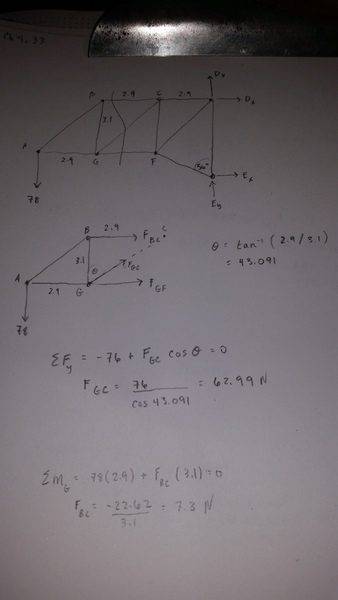 Dy
B 2.9 C 2.9 Dx
3.1
A
2.9 G F
78
Ex
Ey
B 2.9 F BC C
3.1
θ F GC
A 2.9 G F GF
78
θ = tan⁻¹ (2.9/3.1)
= 43.091
ΣFy = -76 + F GC cos θ = 0
F GC = 76 / cos 43.091 = 62.99 N
ΣM G = 78(2.9) + F BC (3.1) = 0
F BC = -22.62 / 3.1 = 7.3 N